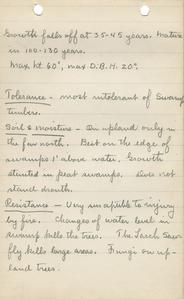 Growth falls off at 35-45 years. Mature
in 100-130 years.
Max. ht 60', max D.B.H. 20".
Tolerance - most intolerant of Swamp
timbers.
Soil & moisture - On upland only in
the far north. Best on the edge of
swamps 1' above water. Growth
stunted in peat swamps. Does not
stand drouth.
Resistance - Very susceptible to injury
by fire. Changes of water level in
swamp kills the trees. The Larch Saw-
fly kills large areas. Fungi on up-
land trees.